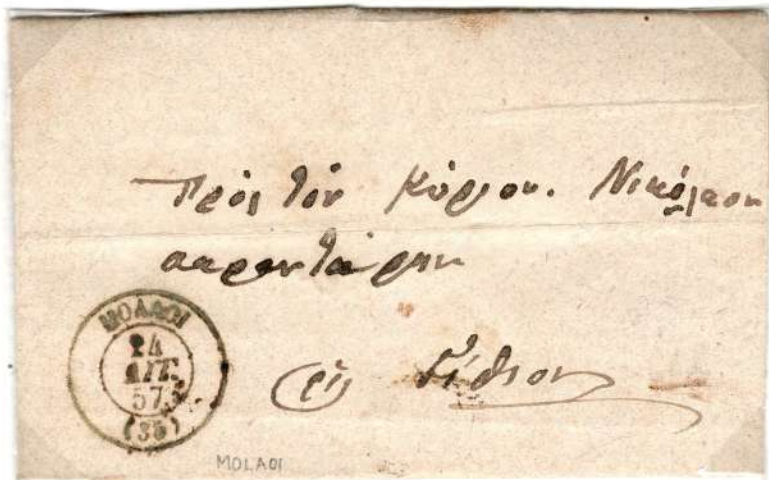 Πρὸς τὸν Κύριον. Νικόλαον
εἰς Γύθιον
ΜΟΛΑΟΙ
24
ΑΥΓ.
57
(35)
MOLAOI